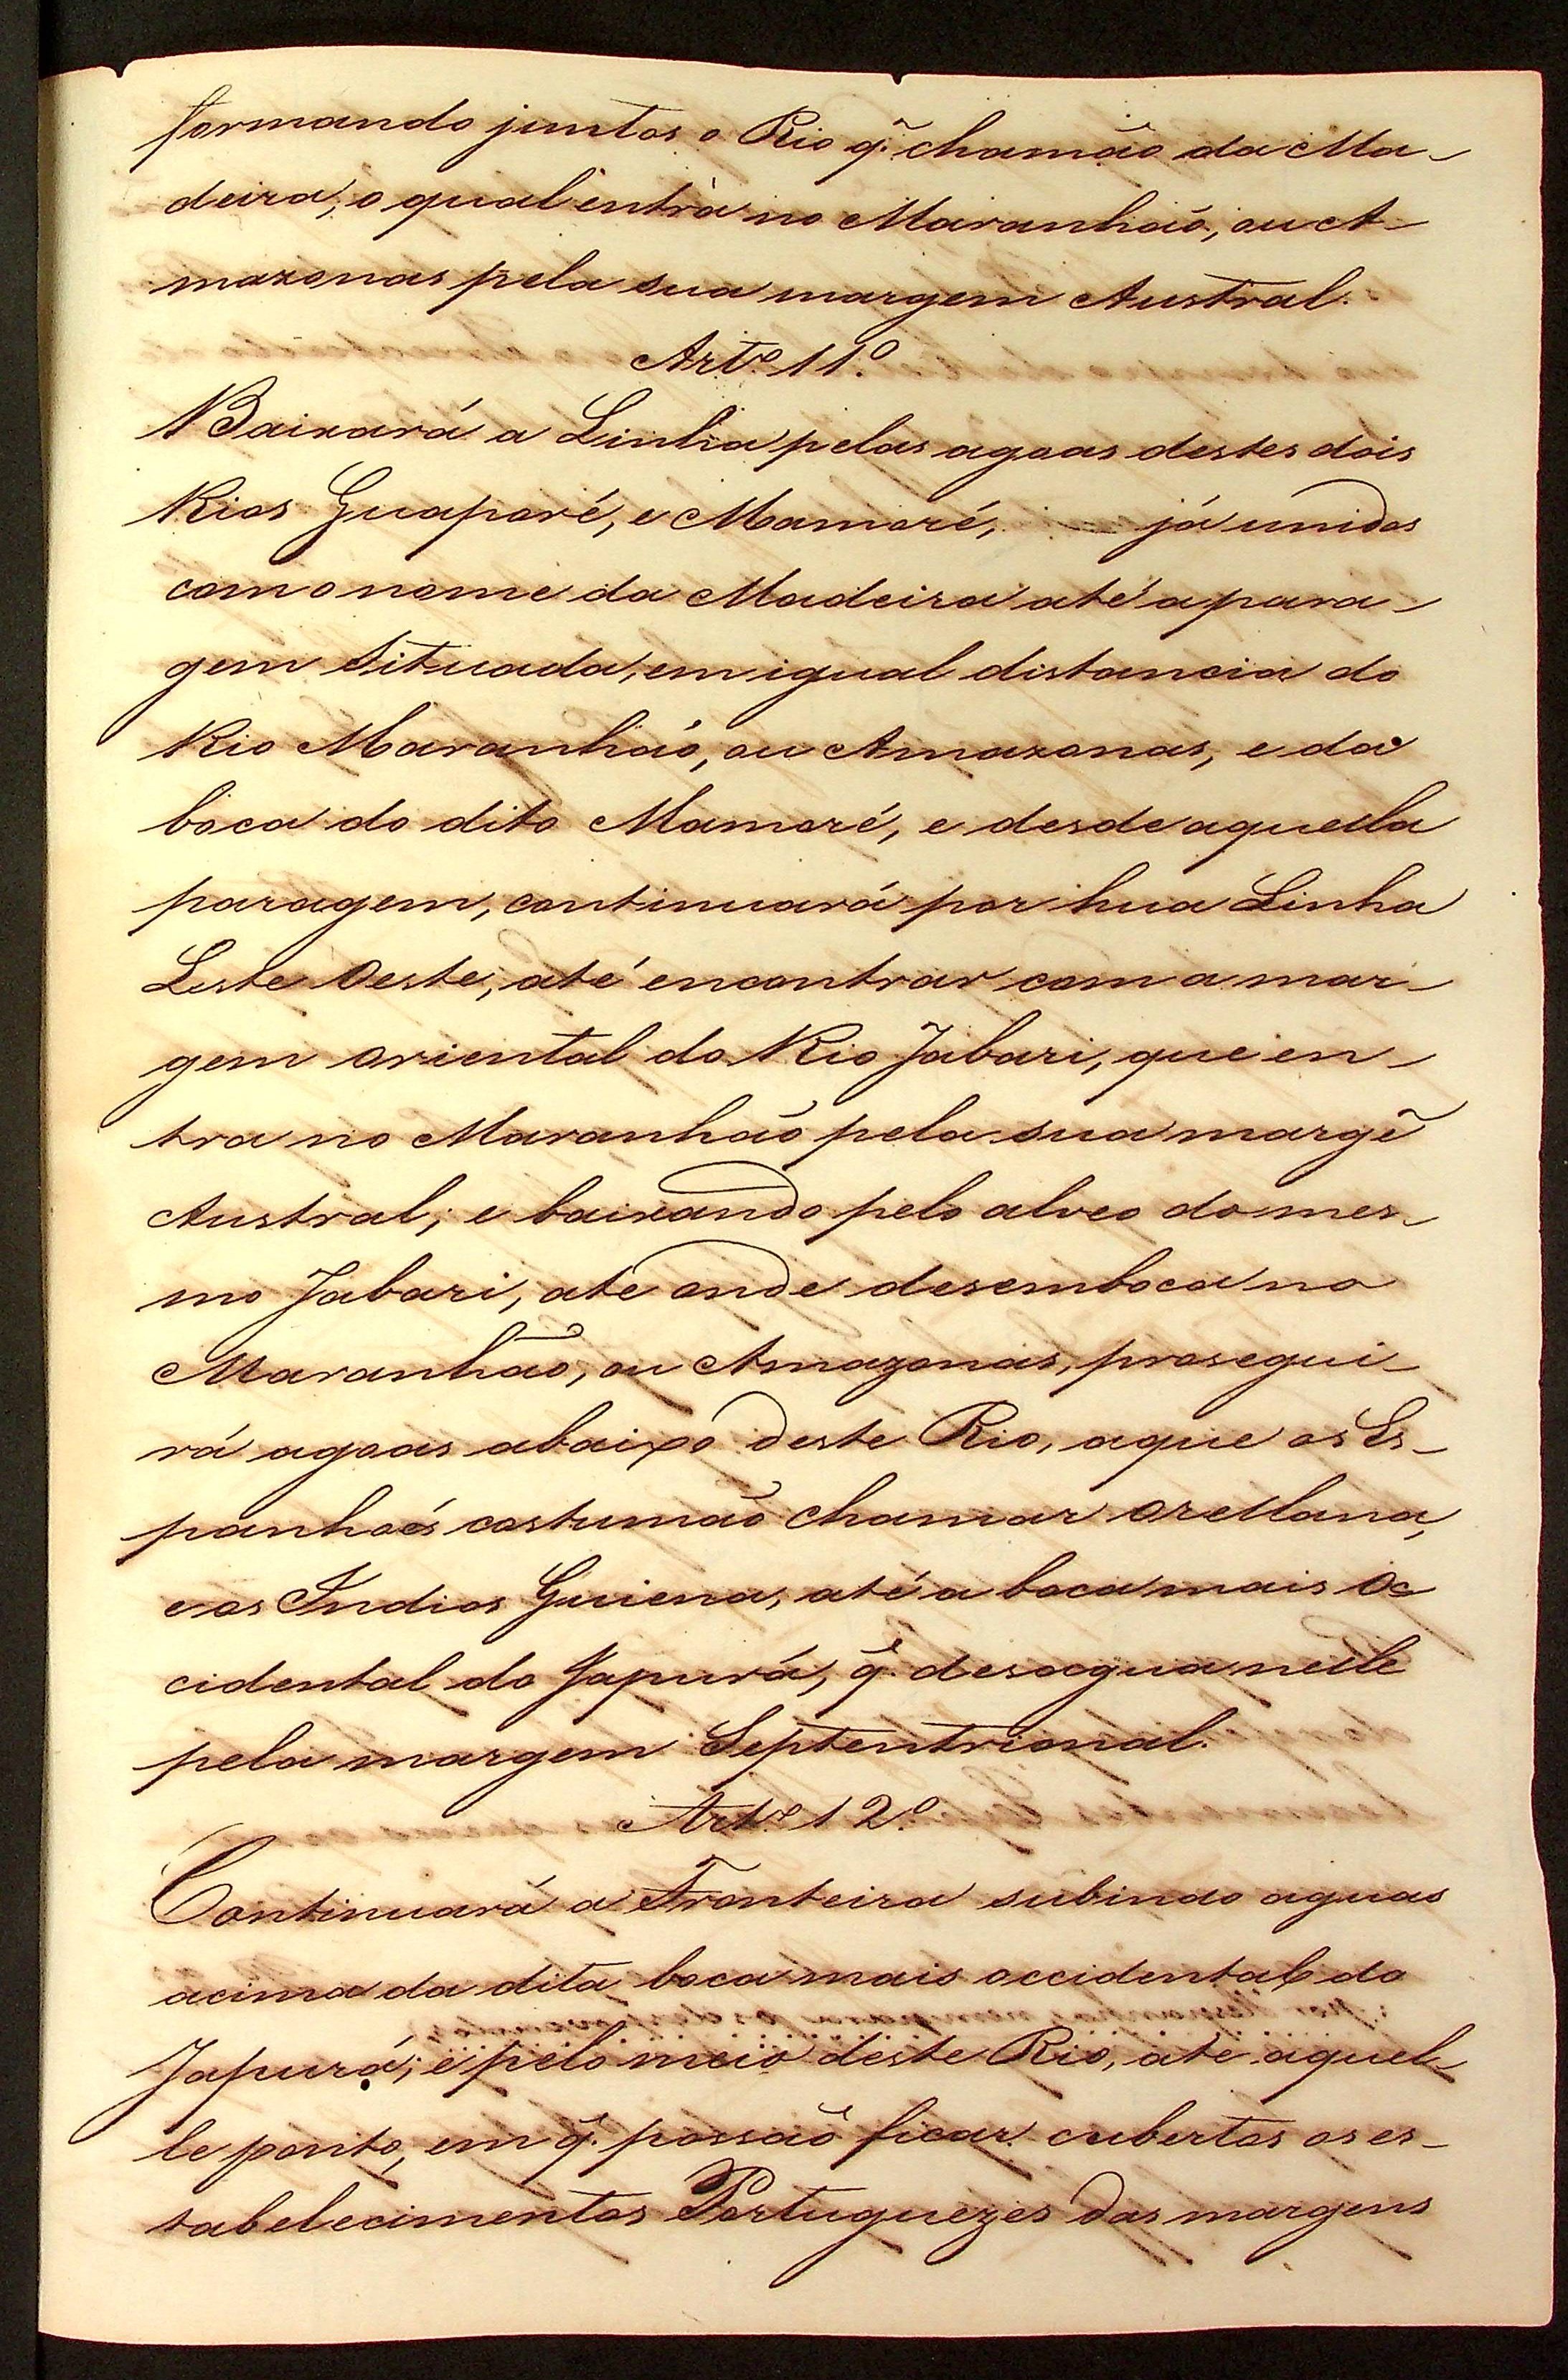 formando juntos o Rio q̃. chamão da Ma-
deira, o qual entra no Maranhaõ, ou A-
mazonas pela sua margem Austral.
Art.º 11.º
Baixará a Linha pelas agoas destes dois
Rios Guaporé, e Mamoré, já unidos
com o nome da Madeira até a para-
gem situada, em igual distancia do
Rio Maranhaõ, ou Amazonas, e da
boca do dito Mamoré, e desde aquella
paragem, continuará por hua Linha
Leste Oeste, até encontrar com a mar-
gem oriental do Rio Jabari, que en-
tra no Maranhaõ pela sua margẽ
Austral; e baixando pelo alveo do mes-
mo Jabari, até onde desemboca no
Maranhão, ou Amazonas, prosegui-
rá agoas abaixo deste Rio, a que os Es-
panhoés costumaõ chamar Orellana,
e os Indios Guiena, até a boca mais Oc
cidental do Japurá, q̃. desagua nelle
pela margem Septentrional.
Art.º 12.º
Continuará a Fronteira subindo aguas
acima da dita boca mais occidental do
Japurá; e pelo meio deste Rio, até aquel-
le ponto, em q̃. possaõ ficar cubertos os es-
tabelecimentos Portuguezes das margens